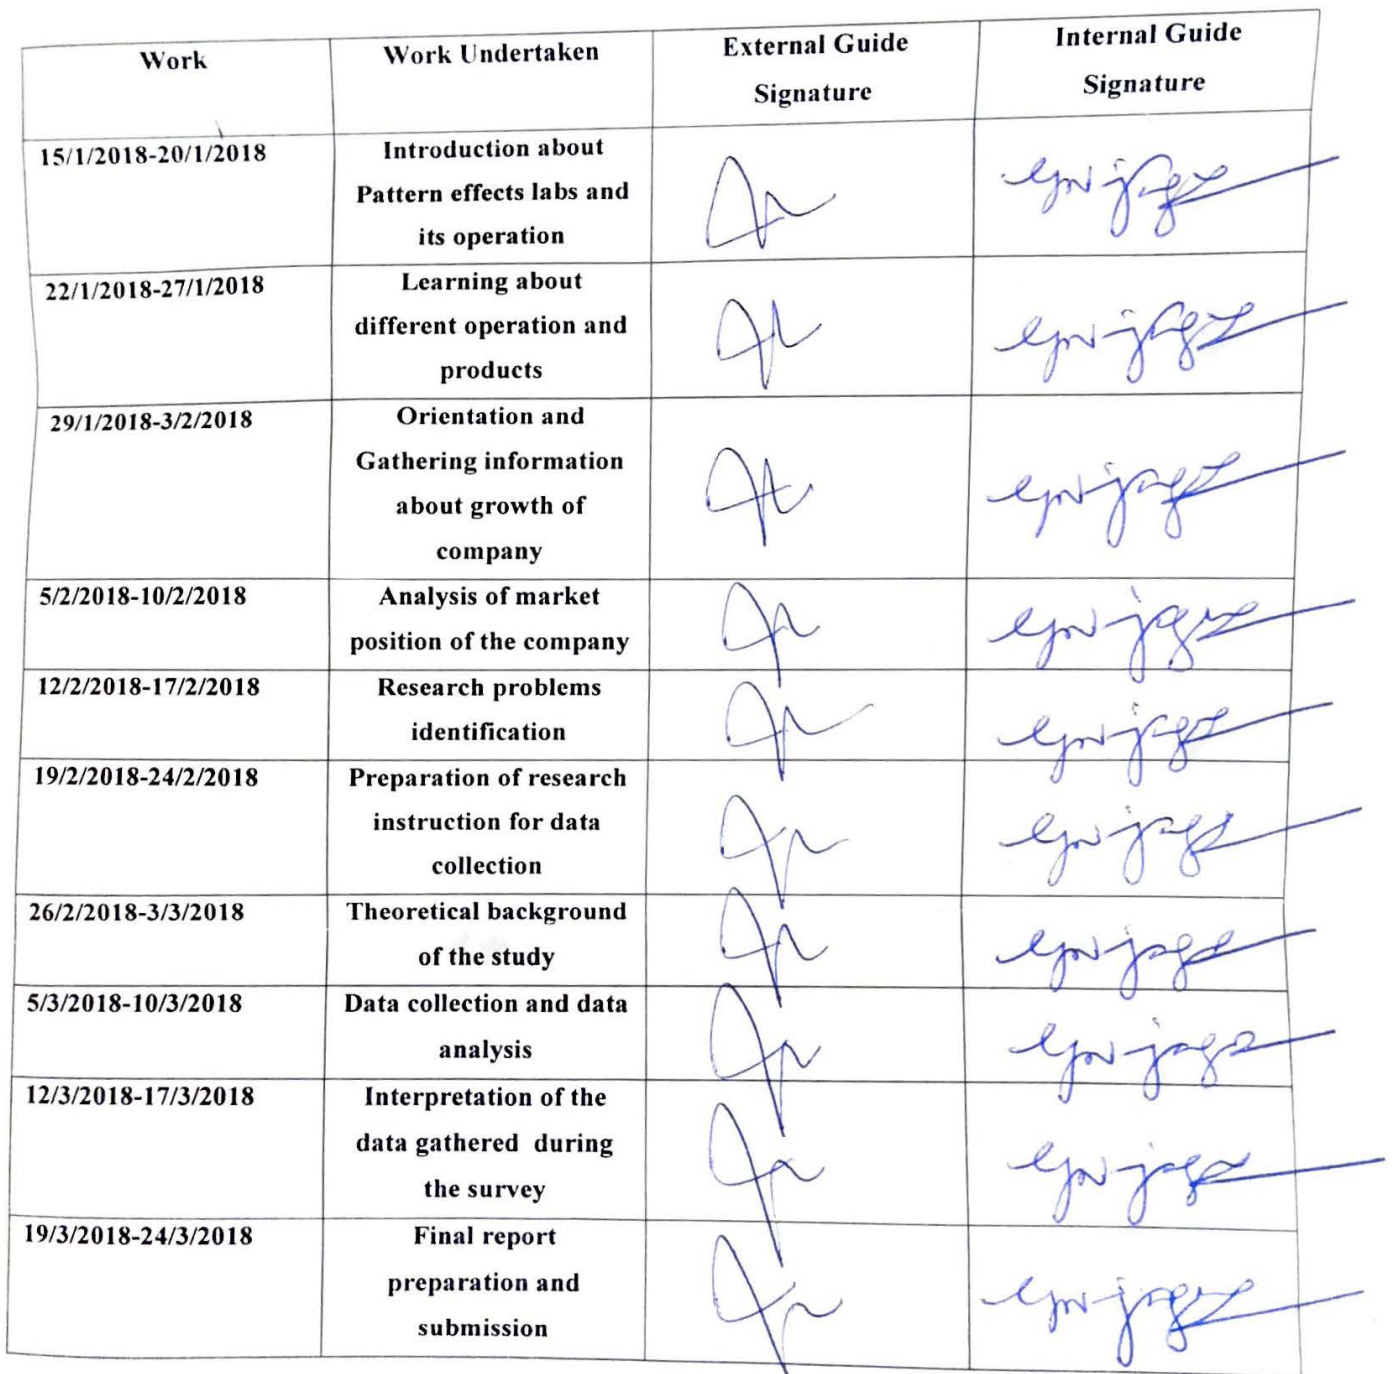 Work
Work Undertaken
External Guide
Signature
Internal Guide
Signature
15/1/2018-20/1/2018
Introduction about
Pattern effects labs and
its operation
22/1/2018-27/1/2018
Learning about
different operation and
products
29/1/2018-3/2/2018
Orientation and
Gathering information
about growth of
company
5/2/2018-10/2/2018
Analysis of market
position of the company
12/2/2018-17/2/2018
Research problems
identification
19/2/2018-24/2/2018
Preparation of research
instruction for data
collection
26/2/2018-3/3/2018
Theoretical background
of the study
5/3/2018-10/3/2018
Data collection and data
analysis
12/3/2018-17/3/2018
Interpretation of the
data gathered during
the survey
19/3/2018-24/3/2018
Final report
preparation and
submission